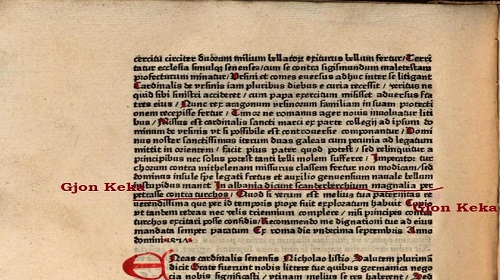 cercitu circiter duorum milium bellator exiturus bellum fertur / Terri
tatur ecclesia simulq senenses / cum se contra sigismundum malatestam
profecturum minatur / Ursini et comes eversus adhuc inter se litigant
Cardinalis de ursinis iam pluribus diebus e curia recessit / veritus ne
quid sibi sinistri accideret / cum papa exercitum misisset adversus fra
tres eius / Nunc rex aragonum ursinorum familiam in suam protecti
onem recepisse fertur / Timor ne romanus ager novis involvatur liti
bus / Missus est cardinalis sancti marci ex parte collegii ad ipsum do
minum de ursinis ut si possibile est controversie componantur / Domi
nus noster sanctissimus iterum duas galeas cum pecunia ad legatum
mittit in orientem / facit pius pater quod potest / sed relinquitur a
principibus nec solus potest tanti belli molem sufferre / Imperator tur
chorum contra mithelenam missurus classem fertur non modicam / sed
dominus insule spe legati fretus et auxilio genuensium navale bellum
intrepidus manet In albania dicunt scanderbechium magnalia per
petrasse contra turchos / Quod si verum est melius tua paternitas re
verendissima que pre id temporis prope fuit exploratum habuit Cupio
ut tandem redeas nec velis triennium complere / nisi principes contra
turchos excitari posse confidis / Recommendo me dignationi tue ad eius
mandata semper paratum Ex roma die undecima septembris Anno
domini
Gjon Keka
Gjon Keka
Eneas cardinalis senensis Nicholao listio Salutem plurimam
dicit Grate fuerunt nobis littere tue quibus germanica nego
cia nobis significasti / utinam melius se res haberent / Sed